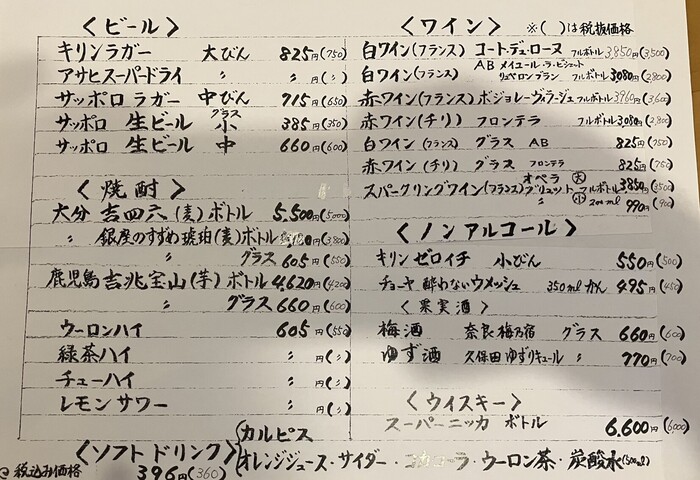 〈ビール〉
キリンラガー 大びん 825円(750)
アサヒスーパードライ 〃 〃円(〃)
サッポロラガー 中びん 715円(650)
サッポロ 生ビール グラス小 385円(350)
サッポロ 生ビール 中 660円(600)
〈焼酎〉
大分 吉四六(麦)ボトル 5,500円(5000)
〃 銀座のすずめ琥珀(麦)ボトル 円(3,800)
〃 グラス 605円(550)
鹿児島 吉兆宝山(芋)ボトル 4,620円(4200)
〃 グラス 660円(600)
ウーロンハイ 605円(550)
緑茶ハイ 〃円(〃)
チューハイ 〃円(〃)
レモンサワー 〃円(〃)
〈ワイン〉 ※( )は税抜価格
白ワイン(フランス) コート・デュ・ローヌ フルボトル 3,850円(3,500)
白ワイン(フランス) AB メイユール・ラ・ リュベロンブラン フルボトル 3080円(2,800)
赤ワイン(フランス) ボジョレーヴィラージュ フルボトル 3960円(3,600)
赤ワイン(チリ) フロンテラ フルボトル 3,080円(2,800)
白ワイン(フランス) グラス AB 825円(750)
赤ワイン(チリ) グラス フロンテラ 825円(750)
スパークリングワイン(フランス) オペラ ブリュット 大 フルボトル 3850円(3500)
〃 小 200ml 990円(900)
〈ノンアルコール〉
キリン ゼロイチ 小びん 550円(500)
チョーヤ 酔わないウメッシュ 350mlかん 495円(450)
〈果実酒〉
梅酒 奈良梅乃宿 グラス 660円(600)
ゆず酒 久保田ゆずリキュール 〃 770円(700)
〈ウイスキー〉
スーパーニッカ ボトル 6,600円(6,000)
〈ソフトドリンク〉
税込み価格 396円(360)
カルピス
オレンジジュース・サイダー・コカコーラ・ウーロン茶・炭酸水(500ml)